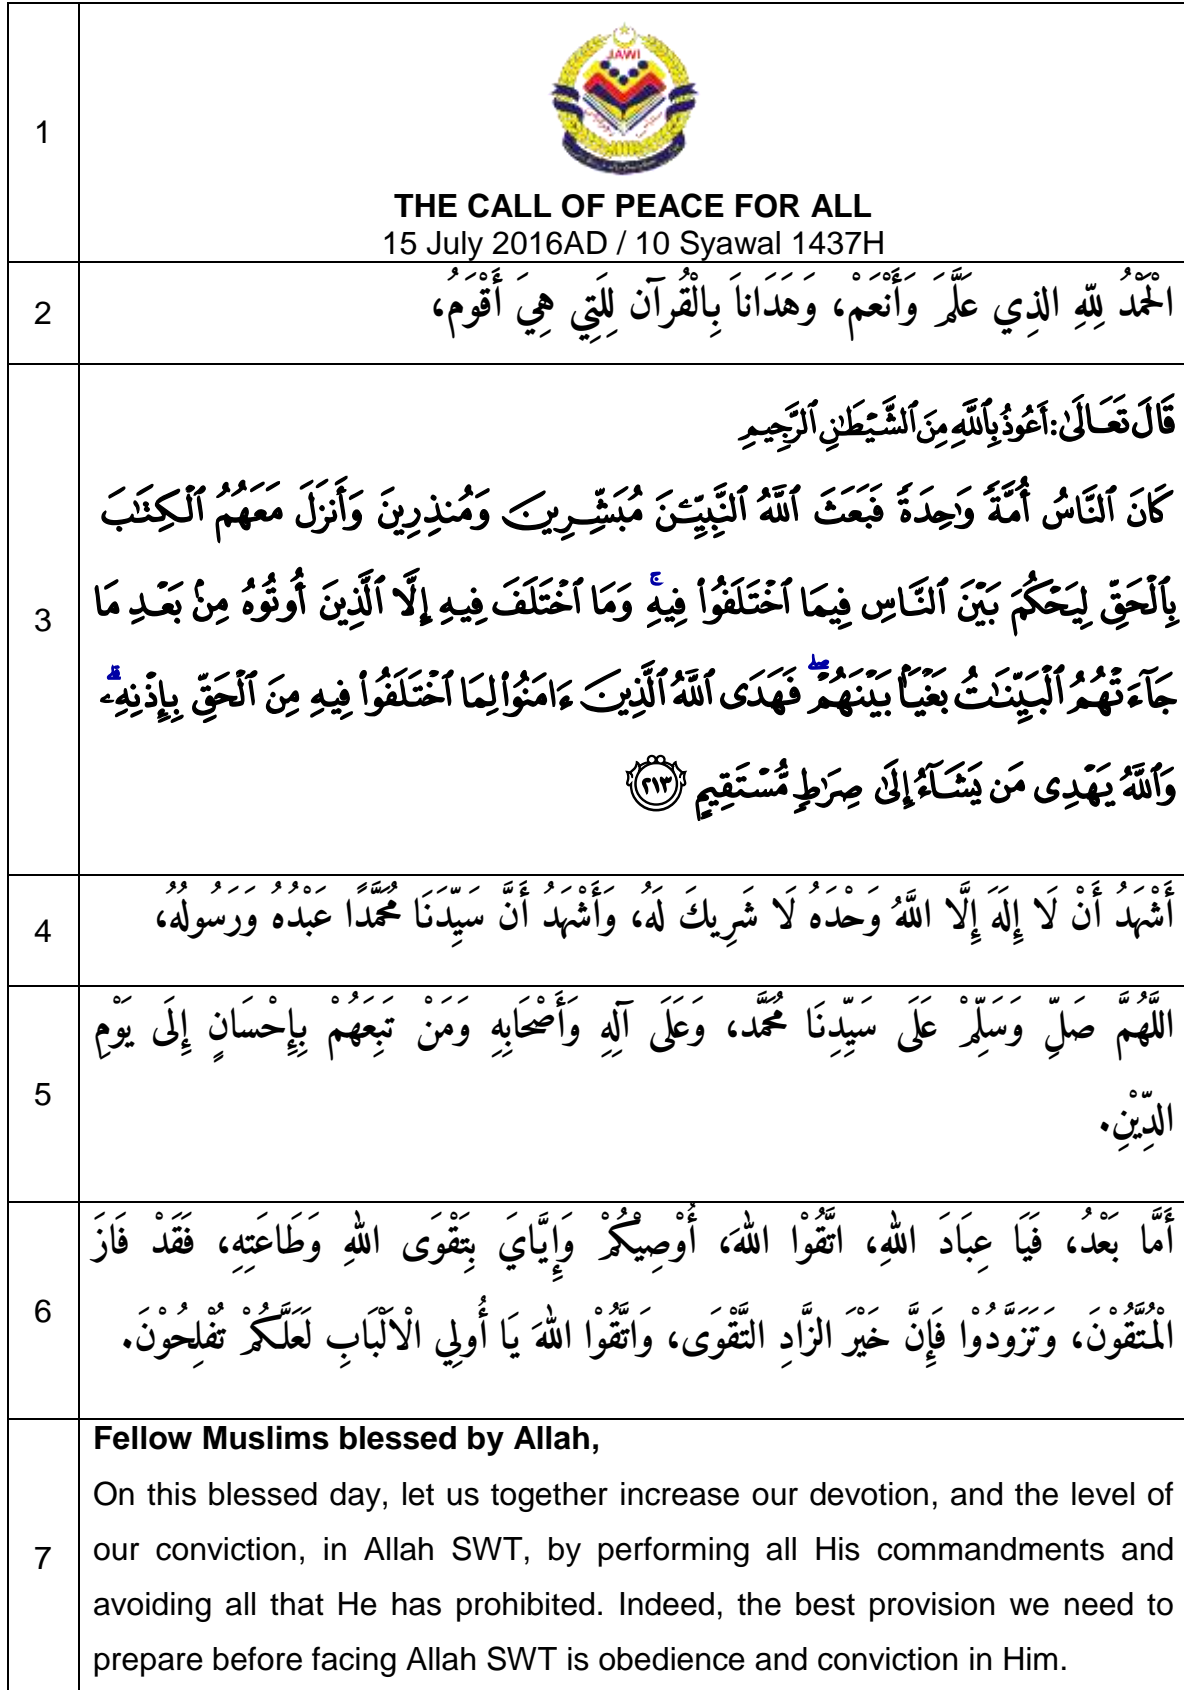 1
JAWI
THE CALL OF PEACE FOR ALL
15 July 2016AD / 10 Syawal 1437H
2
الْحَمْدُ لِلّهِ الذِي عَلَّمَ وَأَنْعَمْ، وَهَدَاناَ بِالْقُرآن لِلَتِي هِيَ أَقْوَمُ،
3
قَالَ تَعَالَىٰ: أَعُوذُ بِٱللَّهِ مِنَ ٱلشَّيْطَٰنِ ٱلرَّجِيمِ
كَانَ ٱلنَّاسُ أُمَّةً وَٰحِدَةً فَبَعَثَ ٱللَّهُ ٱلنَّبِيِّـۧنَ مُبَشِّرِينَ وَمُنذِرِينَ وَأَنزَلَ مَعَهُمُ ٱلْكِتَٰبَ
بِٱلْحَقِّ لِيَحْكُمَ بَيْنَ ٱلنَّاسِ فِيمَا ٱخْتَلَفُوا۟ فِيهِ ۚ وَمَا ٱخْتَلَفَ فِيهِ إِلَّا ٱلَّذِينَ أُوتُوهُ مِنۢ بَعْدِ مَا
جَآءَتْهُمُ ٱلْبَيِّنَٰتُ بَغْيًۢا بَيْنَهُمْ ۖ فَهَدَى ٱللَّهُ ٱلَّذِينَ ءَامَنُوا۟ لِمَا ٱخْتَلَفُوا۟ فِيهِ مِنَ ٱلْحَقِّ بِإِذْنِهِۦ ۗ
وَٱللَّهُ يَهْدِى مَن يَشَآءُ إِلَىٰ صِرَٰطٍ مُّسْتَقِيمٍ ٢١٣
4
أَشْهَدُ أَنْ لَا إِلَهَ إِلَّا اللَّهُ وَحْدَه لَا شَرِيكَ لَهُ، وَأَشْهَدُ أَنَّ سَيِّدَنَا مُحَمَّدًا عَبْدُه وَرَسولُهُ،
5
اللَّهُمَّ صَلِّ وَسَلِّمْ عَلَى سَيِّدِنَا مُحَمَّد، وَعَلَى آلِهِ وَأَصْحَابِهِ وَمَنْ تَبِعَهُمْ بِإِحْسَانٍ إِلَى يَوْمِ
الدِّيْنِ.
6
أَمَّا بَعْدُ، فَيَا عِبَادَ اللهِ، اتَّقُوْا اللهَ، أُوْصِيْكُمْ وَإِيَّايَ بِتَقْوَى اللهِ وَطَاعَتِهِ، فَقَدْ فَازَ
الْمُتَّقُوْنَ، وَتَزَوَّدُوْا فَإِنَّ خَيْرَ الزَّادِ التَّقْوَى، وَاتَّقُوْا اللهَ يَا أُولِي الْالْبَابِ لَعَلَّكُمْ تُفْلِحُوْنَ.
7
Fellow Muslims blessed by Allah,
On this blessed day, let us together increase our devotion, and the level of
our conviction, in Allah SWT, by performing all His commandments and
avoiding all that He has prohibited. Indeed, the best provision we need to
prepare before facing Allah SWT is obedience and conviction in Him.